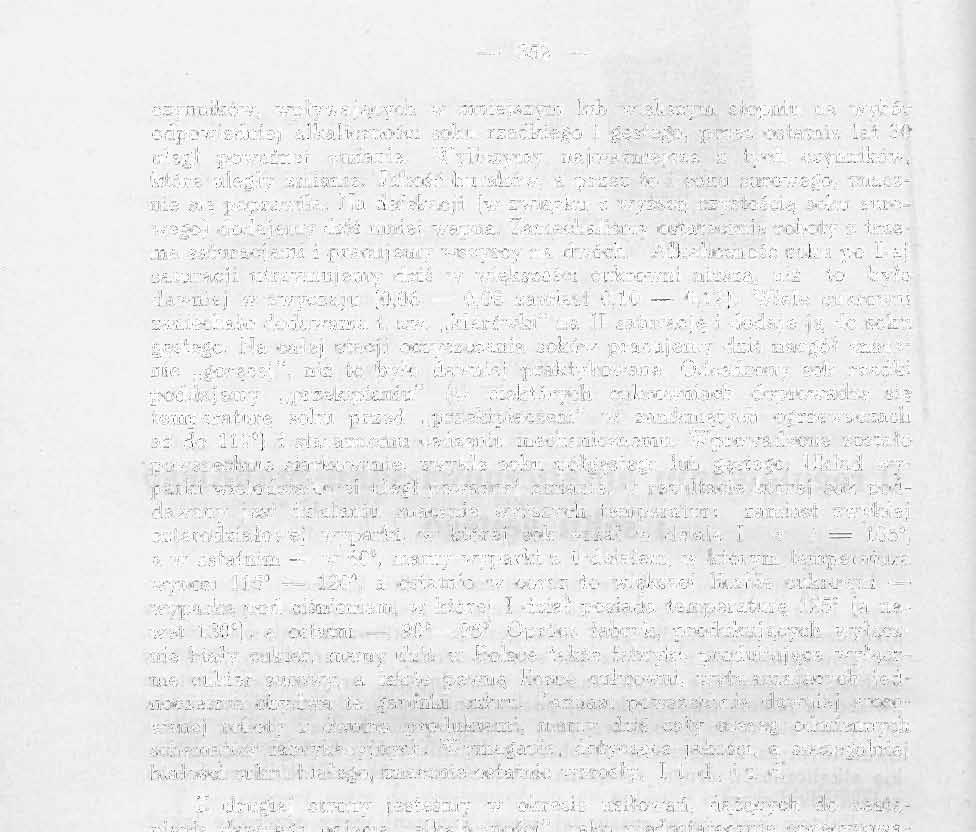 — 352 —
czynników, wpływających w mniejszym lub większym stopniu na wybór
odpowiedniej alkaliczności soku rzadkiego i gęstego, przez ostatnie lat 30
uległ poważnej zmianie. najważniejsze z tych czynników,
które uległy zmianie. Jakość buraków, a przez to i soku surowego, znacz-
nie się poprawiła. Na defekacji (w związku z wyższą czystością soku suro-
wego) dodajemy dziś mniej wapna. Zaniechaliśmy ostatecznie roboty z trze-
ma saturacjami i pracujemy wszyscy na dwóch. Alkaliczność soku po I-ej
saturacji utrzymujemy dziś w większości cukrowni niższą, niż to było
dawniej w zwyczaju (0,06 — 0,08 zamiast 0,10 — 0,12). Wiele cukrowni
zaniechało dodawania t. zw. „klarówki” na II saturację i dodaje ją do soku
gęstego. Na całej stacji oczyszczania soków pracujemy dziś naogół znacz-
nie „goręcej”, niż to było dawniej praktykowane. Odwapniony sok rzadki
poddajemy „przekipianiu” (w niektórych cukrowniach doprowadza się
temperaturę soku przed „przekipiaczem” w zamkniętych ogrzewaczach
aż do 110°) i starannemu cedzeniu mechanicznemu. Wprowadzone zostało
powszechnie siarkowanie, zwykle soku półgęstego lub gęstego. Układ wy-
parki uległ zmianie, rezultacie której sok pod-
dawany jest działaniu znacznie wyższych temperatur: zamiast zwykłej
czterodziałowej wyparki, w której sok miał w dziale I = 105°,
a w ostatnim — 60°, mamy wyparki z I działem, w którym temperatura
wynosi 115° — 120°, a ostatnio w coraz to większej liczbie cukrowni —
wyparkę pod ciśnieniem, w której I dział posiada temperaturę 125° (a na-
wet 130°), a ostatni — 90° Oprócz fabryk, produkujących wyłącz-
nie biały cukier, mamy dziś w Polsce także fabryki, produkujące wyłącz-
nie cukier surowy, a także pewną ilość cukrowni, wytwarzających jed-
nocześnie obydwa te gatunki cukru. Zamiast powszechnie dawniej stoso-
wanej roboty z dwoma produktami, mamy dziś cały szereg odmiennych
schematów Wymagania, dotyczące jakości, a szczególniej
białości cukru białego, znacznie ostatnio wzrosły. I t. d., i t. d.
Z drugiej strony jesteśmy w okresie usiłowań, dążących do zastą-
pienia dawnego pojęcia „alkaliczności”,